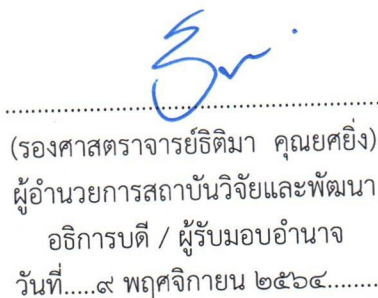 (รองศาสตราจารย์ธิติมา คุณยศยิ่ง)
ผู้อำนวยการสถาบันวิจัยและพัฒนา
อธิการบดี / ผู้รับมอบอำนาจ
วันที่.....๙ พฤศจิกายน ๒๕๖๔.........